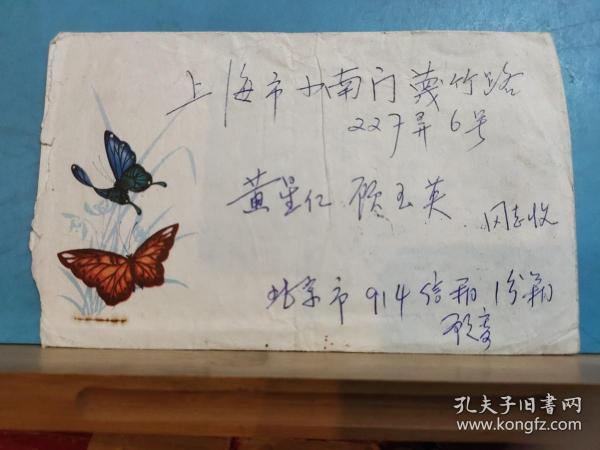 上海市小南门篾竹路
227弄6号
黄星仁 顾玉英
同志收
北京市914信箱1分箱
顾
孔夫子旧书网
www.kongfz.com